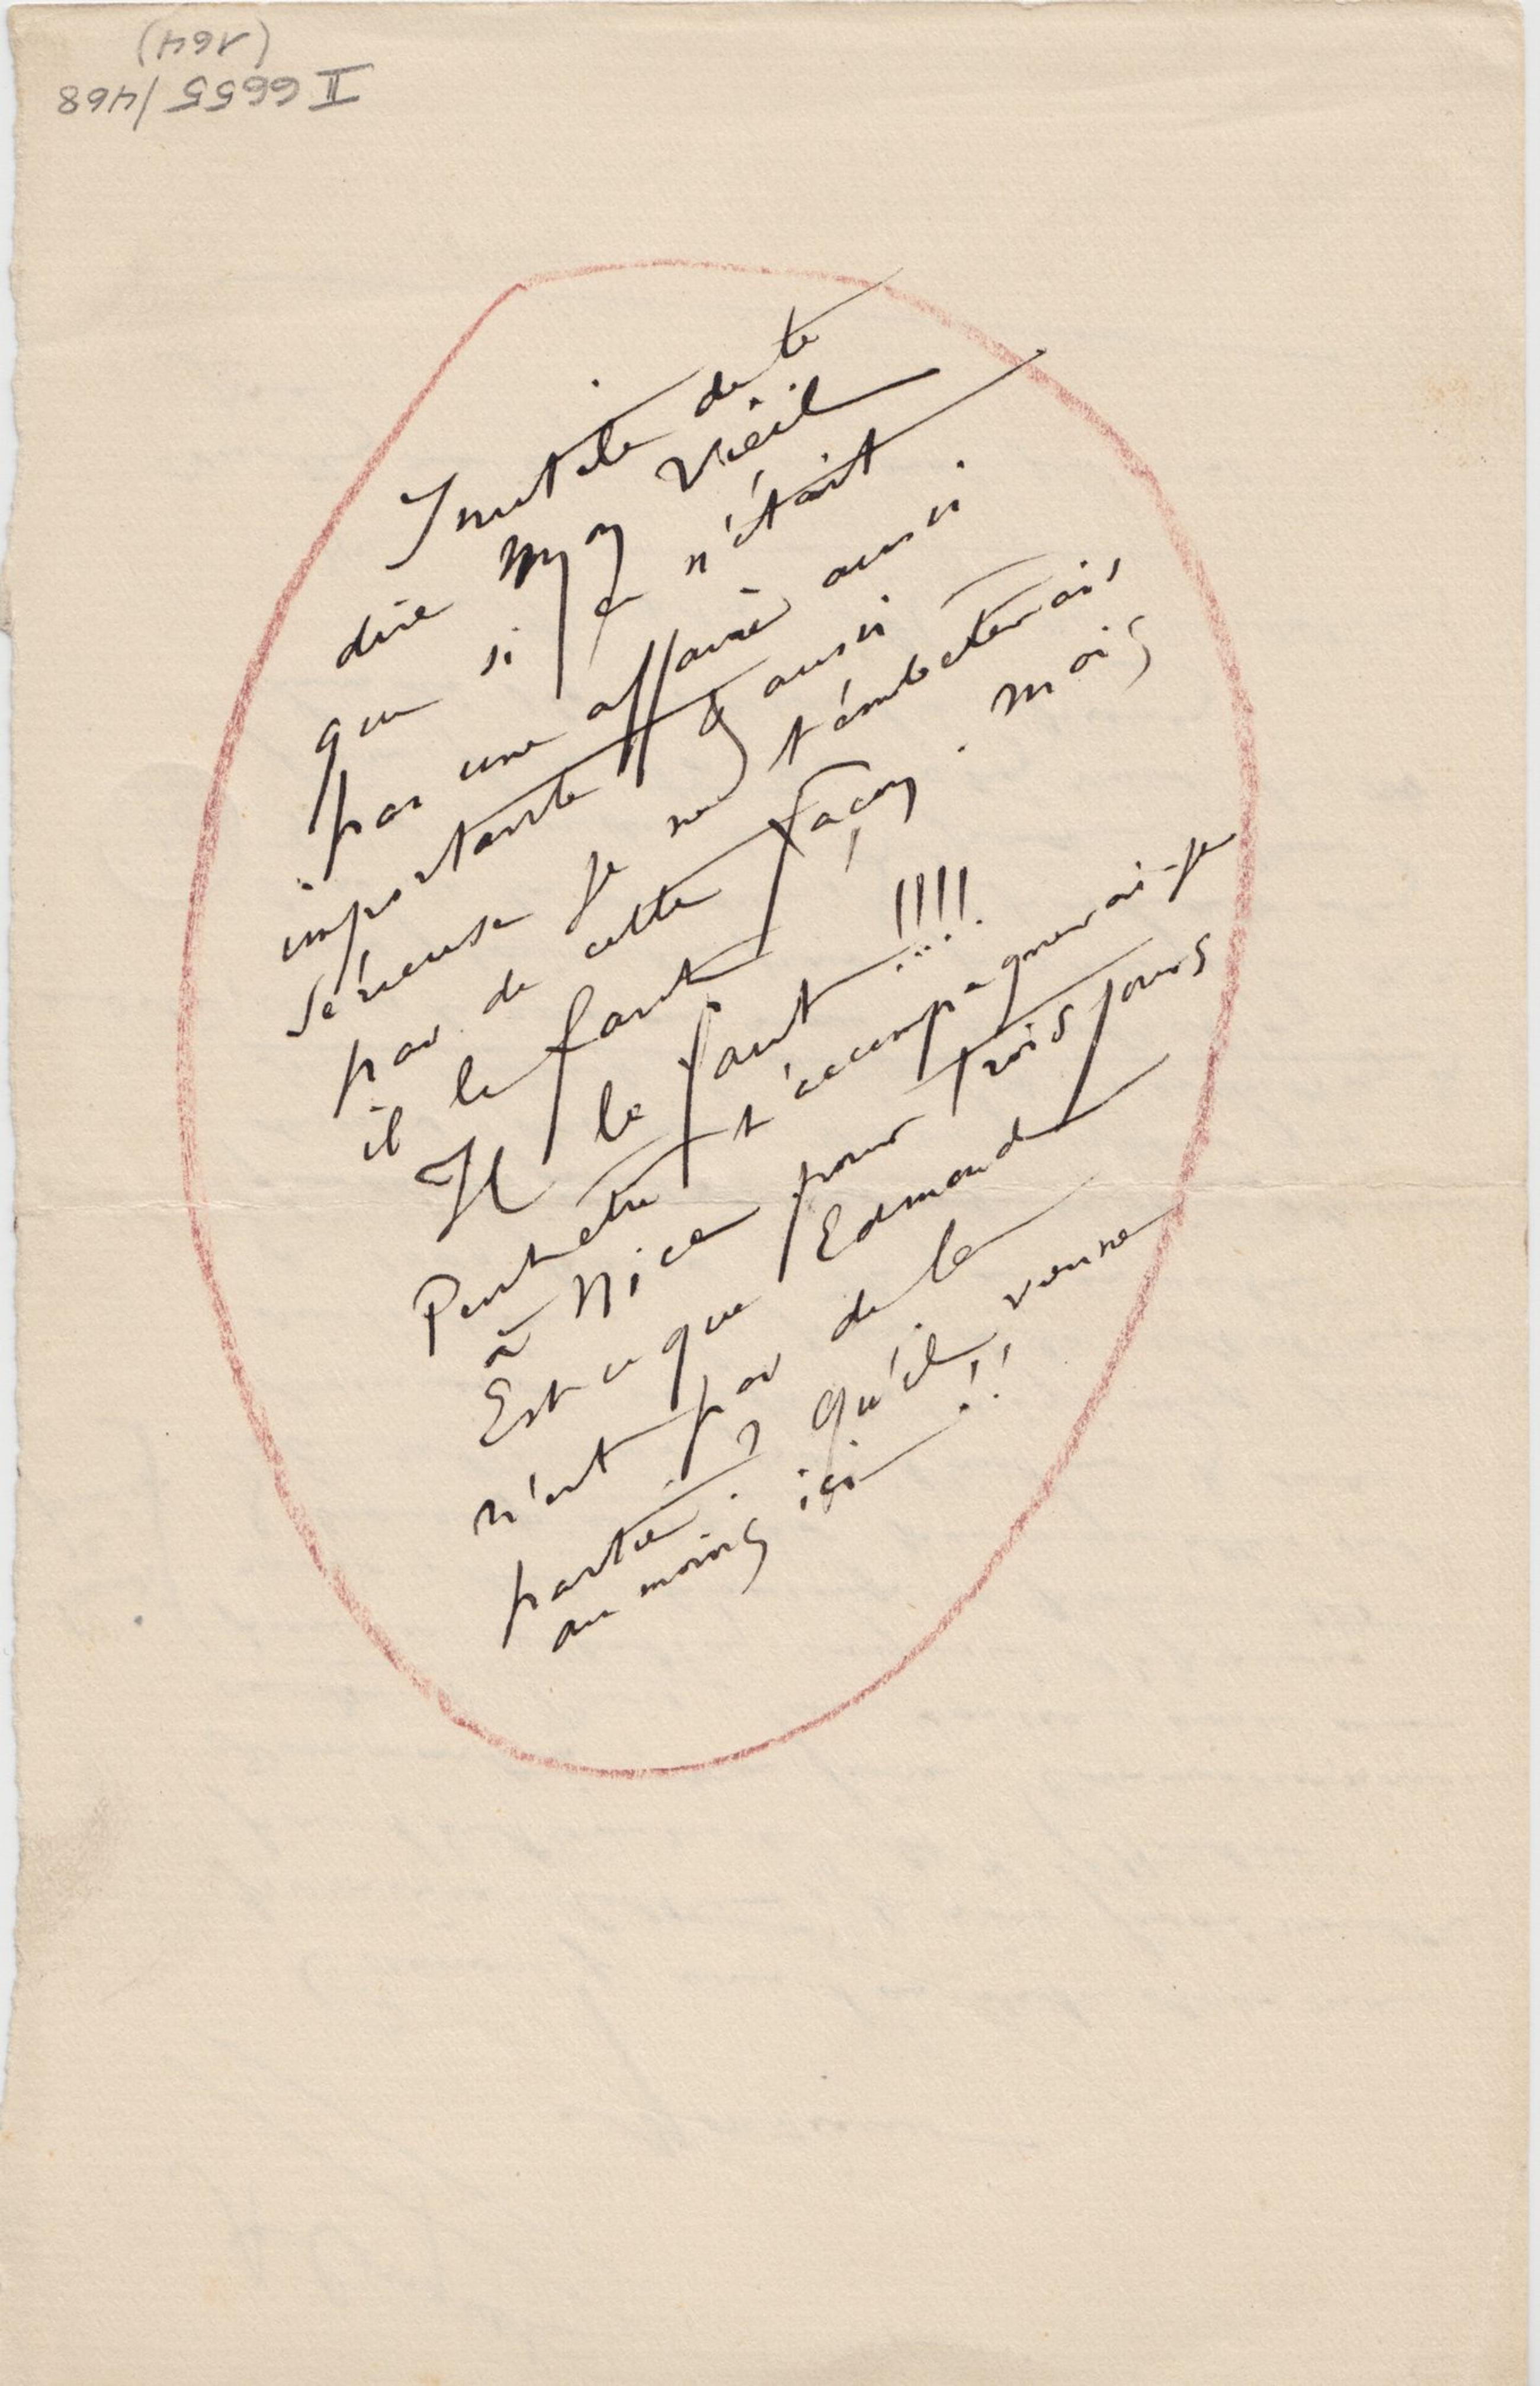 II 6655/468
(164)
Inutile de te
dire mon vieil
que si ce n'était
pas une affaire aussi
importante & aussi
sérieuse je ne t'embeterais
pas de cette façon. Mais
il le faut
Il le faut !!!!
Peut etre t'accompagnerai-je
à Nice pour trois jours
Est ce que Edmond
n'est pas de la
partie ? qu'il vienne
au moins ici !!